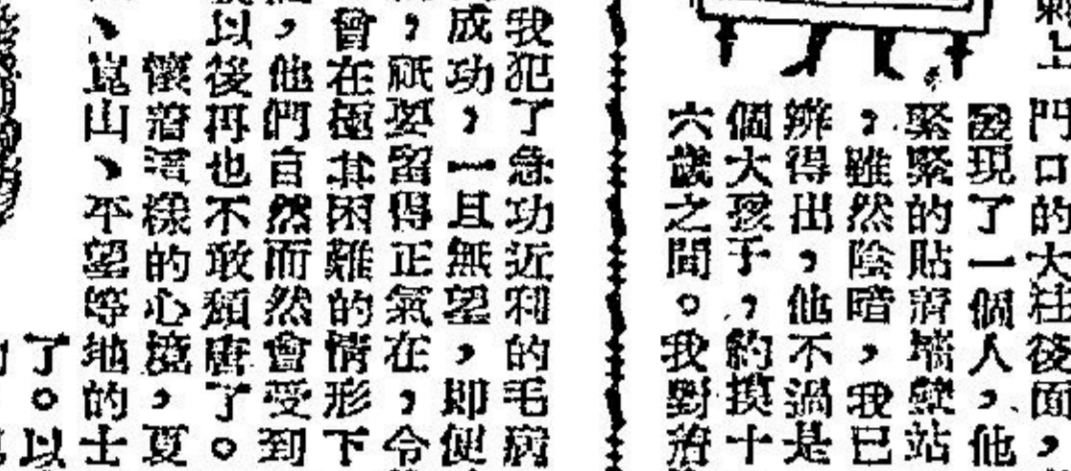 刺上
門口的大柱後面，
發現了一個人，他
緊緊的貼着牆壁站
，雖然陰暗，我已
辨得出，他不過是
個大孩子，約摸十
六歲之間。我對着
我犯了急功近利的毛病
成功，一旦無望，即便
，祇要留得正氣在，令
會在極其困難的情形下
，他們自然而然會受到
以後再也不敢頹唐了。
懷着這樣的心境，夏
、崑山、平望等地的士
了。以